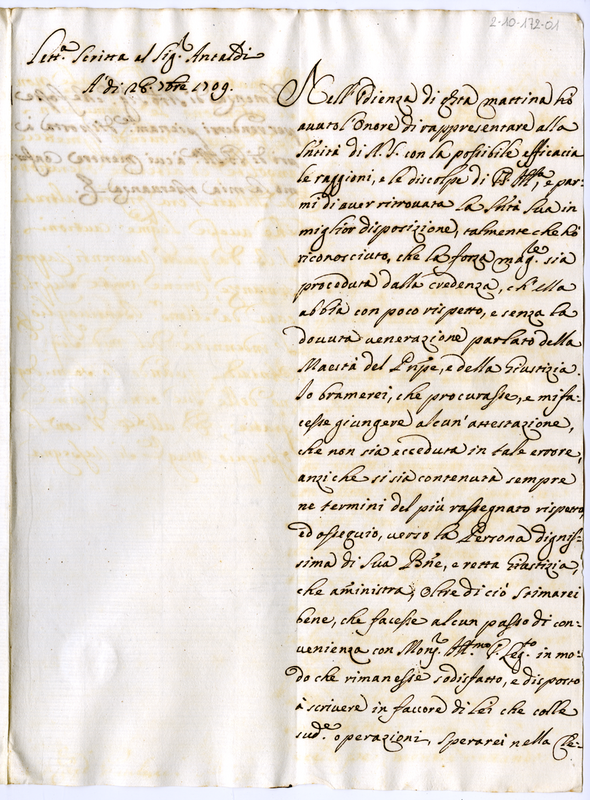 2-10-172-01
Lett.ª Scritta al Sig.r Antaldi
A' dì 28. 7bre 1709.
Nell'Vdienza di q̃sta mattina hò
avuto l'onore di rappresentare alla
Sñtità di N. S. con la possibile efficacia
le raggioni, e le discolpe di e par-
mi di aver ritrovata la Sñtà Sua in
miglior disposizione, talmente che hò
riconosciuto, che la forza mag.re sia
proceduta dalla credenza, ch'ella
abbia con poco rispetto, e senza la
dovuta venerazione parlato della
Maestà del Pñpe, e della Giustizia.
Io bramerei, che procurasse, e mi fa-
cesse giungere alcun'attestazione,
che non sia ecceduta in tale errore,
anzi che si sia contenuta sempre
ne termini del più rassegnato rispetto
ed ossequio, verso la Persona dignis-
sima di Sua Bñe, e retta Giustizia,
che aministra, Oltre di ciò stimarei
bene, che facesse alcun passo di con-
venienza con Mons.r Ill.mo V. Leg.to in mo-
do che rimanesse sodisfatto, e disposto
à scrivere in favore di Lei che colle
sud.e operazioni, sperarei nella Cle-